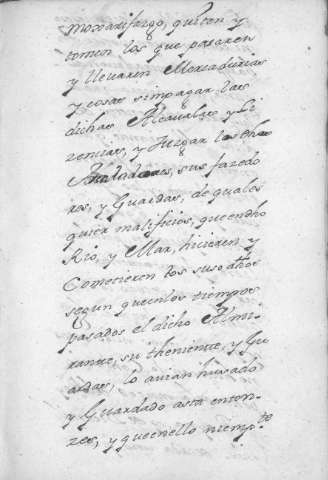 moxarifazgo, quiten y
tomen los que pasaren
y llevaren Mercadurias
y cosas sin pagar las
dichas Alcavalas y Li
zencias, y Juzgar los dhos
sus fazedo
res, y Guardas, de quales
quier malificios, que en dho
Rio, y Mar, hicieren y
Cometieren los suso dhos
segun que en los tiempos
pasados el dicho Almi
rante, su theniente, y Gu
ardas, lo avian husado
y Guardado asta enton-
zes, y que en ello niempte